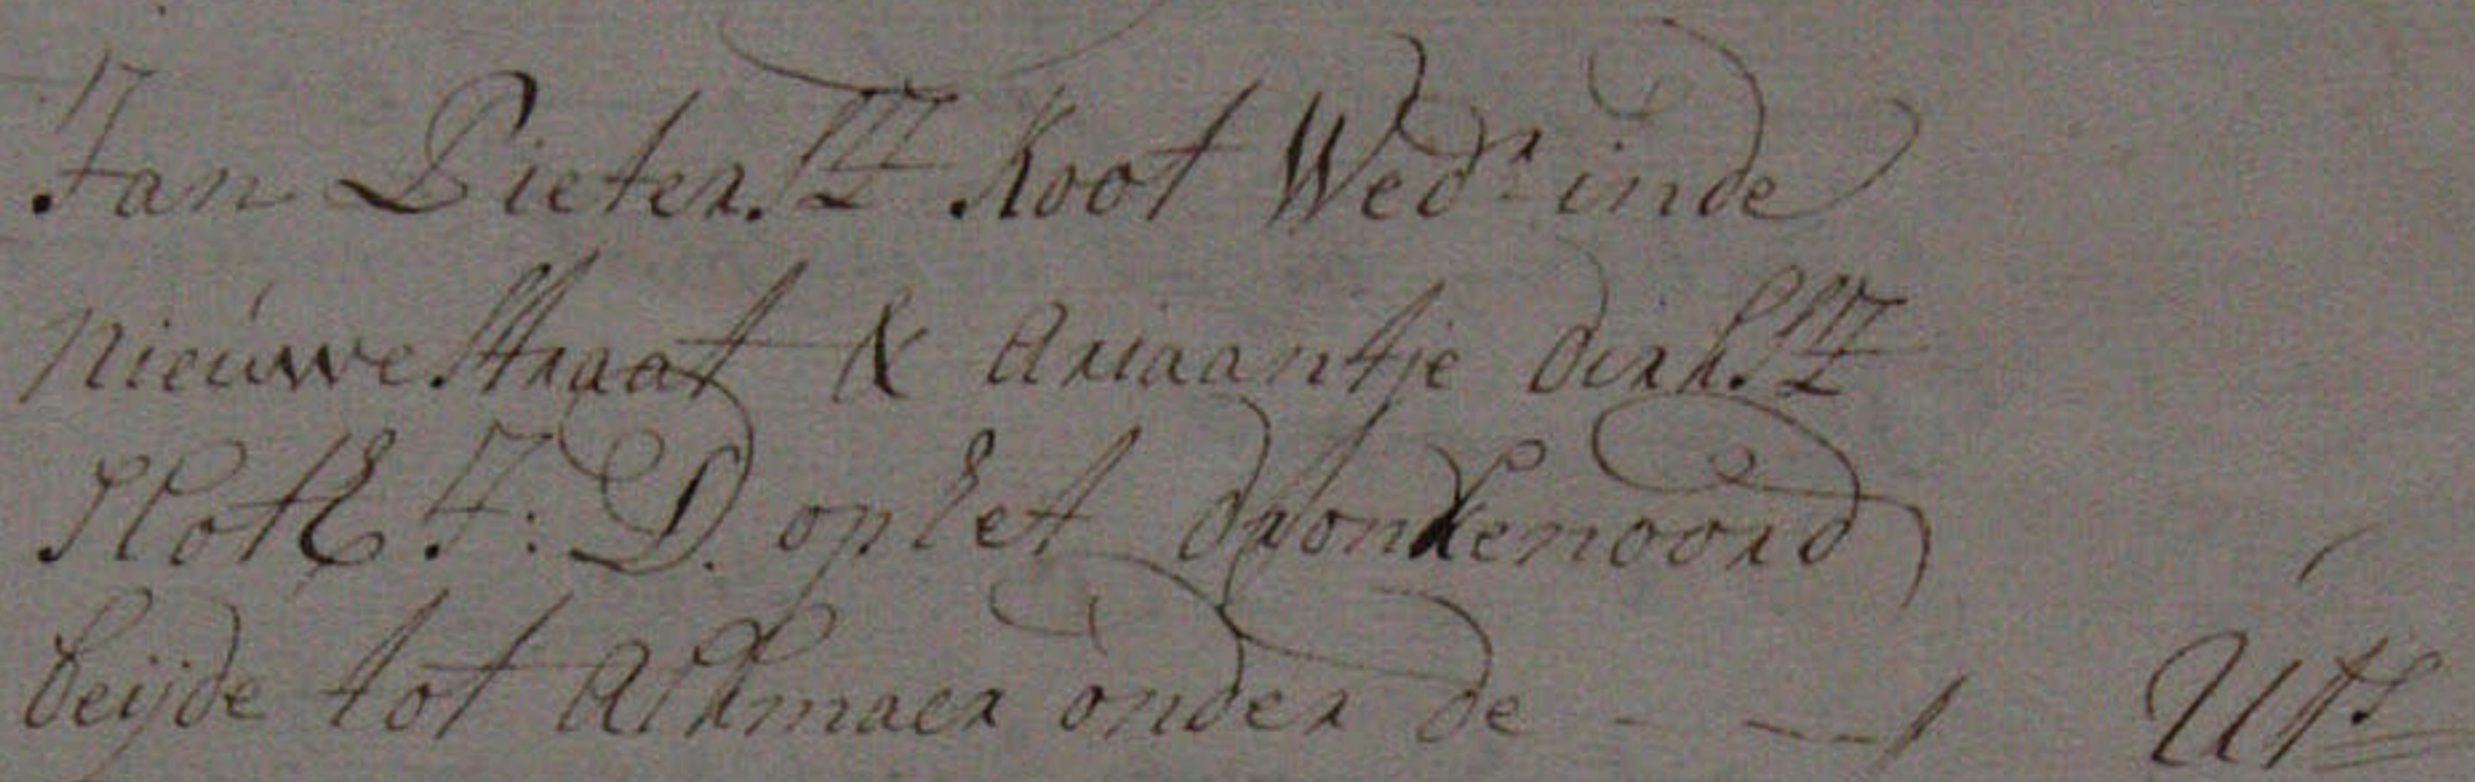 Jan Pietersz Koot Wedr inde
nieuwe straat & Ariaantje dirksz
Slot J: D. op het dronkenoord
beijde tot Alkmaer onder de - - Uts